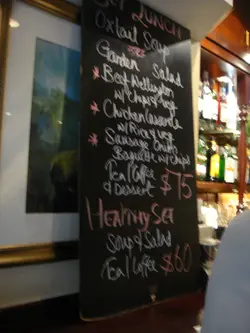 SET LUNCH
Oxtail Soup
Garden Salad
* Beef Wellington
w/ Chips & veg
* Chicken Casserole
w/ Rice & veg
* Sausage Onion
Baguette w/ chips
Tea/Coffee
& Dessert $75
HEALTHY SET
Soup & Salad
Tea/Coffee $60